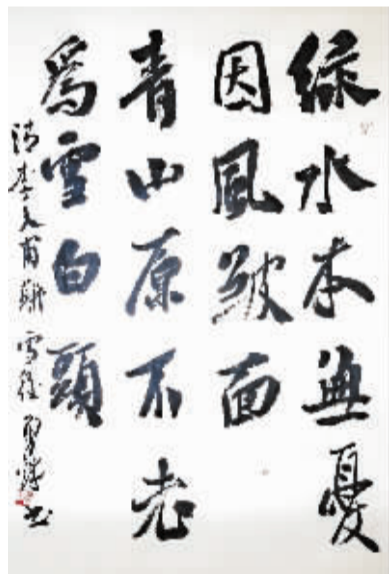 綠水本無憂
因風皺面
青山原不老
為雪白頭
清李文甫聯 雪後
書